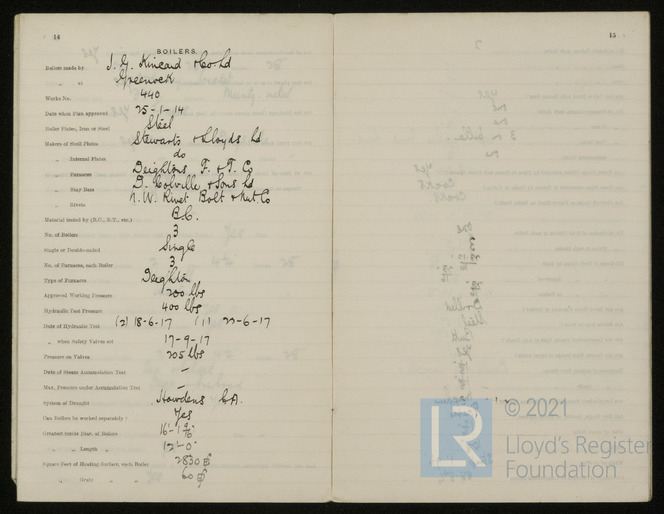 14
BOILERS.
Boilers made by J. G. Kincaid & Co Ld
„ at Greenock
Works No. 440
Date when Plan approved 25-1-14
Boiler Plates, Iron or Steel Steel
Makers of Shell Plates Stewarts & Lloyds Ld
„ Internal Plates do
„ Furnaces Deightons F. & T. Co
„ Stay Bars D. Colville & Sons Ld
„ Rivets N. W. Rivet Bolt & Nut Co
Material tested by (B.C., B.T., etc.) B.C.
No. of Boilers 3
Single or Double-ended Single
No. of Furnaces, each Boiler 3
Type of Furnaces Deighton
Approved Working Pressure 200 lbs
Hydraulic Test Pressure 400 lbs
Date of Hydraulic Test (2) 18-6-17 (1) 22-6-17
„ when Safety Valves set 17-9-17
Pressure on Valves 205 lbs
Date of Steam Accumulation Test –
Max. Pressure under Accumulation Test –
System of Draught Howdens
Can Boilers be worked separately? Yes
Greatest inside Diam. of Boilers 16'-1
„ „ Length „ 12'-0"
Square Feet of Heating Surface, each Boiler 2830
„ „ Grate „ „ 60
15
© 2021
LR
Lloyd's Register
Foundation